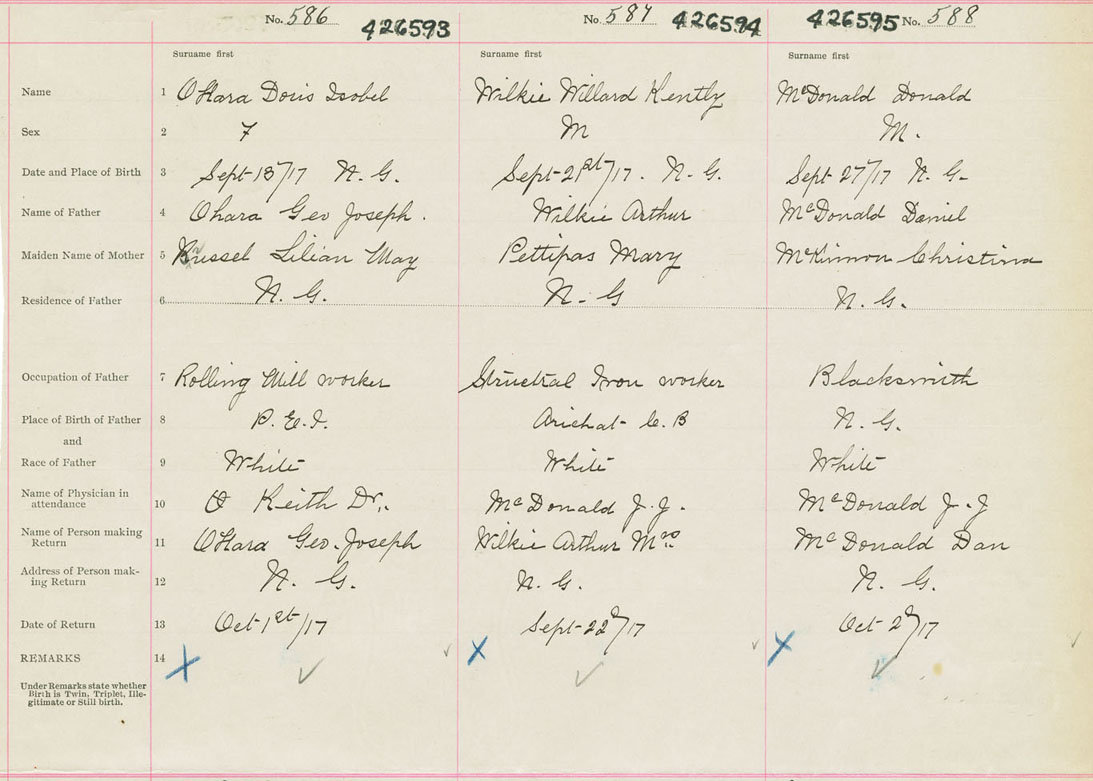 No. 586 426593 No. 587 426594 426595 No. 588
Surname first Surname first Surname first
Name 1 OHara Doris Isobel Wilkie Willard Kently McDonald Donald
Sex 2 F M M.
Date and Place of Birth 3 Sept 18/17 N. G. Sept-21st/17. N. G. Sept 27/17 N. G.
Name of Father 4 Ohara Geo Joseph. Wilkie Arthur McDonald Daniel
Maiden Name of Mother 5 Russel Lilian May Pettipas Mary McKinnon Christina
Residence of Father 6 N. G. N. G N. G.
Occupation of Father 7 Rolling Mill worker Structral Iron worker Blacksmith
Place of Birth of Father 8 P. E. I. Arichat C. B N. G.
and
Race of Father 9 White White White
Name of Physician in
attendance 10 O Keith Dr. McDonald J. J. McDonald J. J
Name of Person making
Return 11 OHara Geo. Joseph Wilkie Arthur Mrs. McDonald Dan
Address of Person mak-
ing Return 12 N. G. N. G. N. G.
Date of Return 13 Oct 1st/17 Sept-22d/17 Oct 2d/17
REMARKS 14
Under Remarks state whether
Birth is Twin, Triplet, Ille-
gitimate or Still birth.